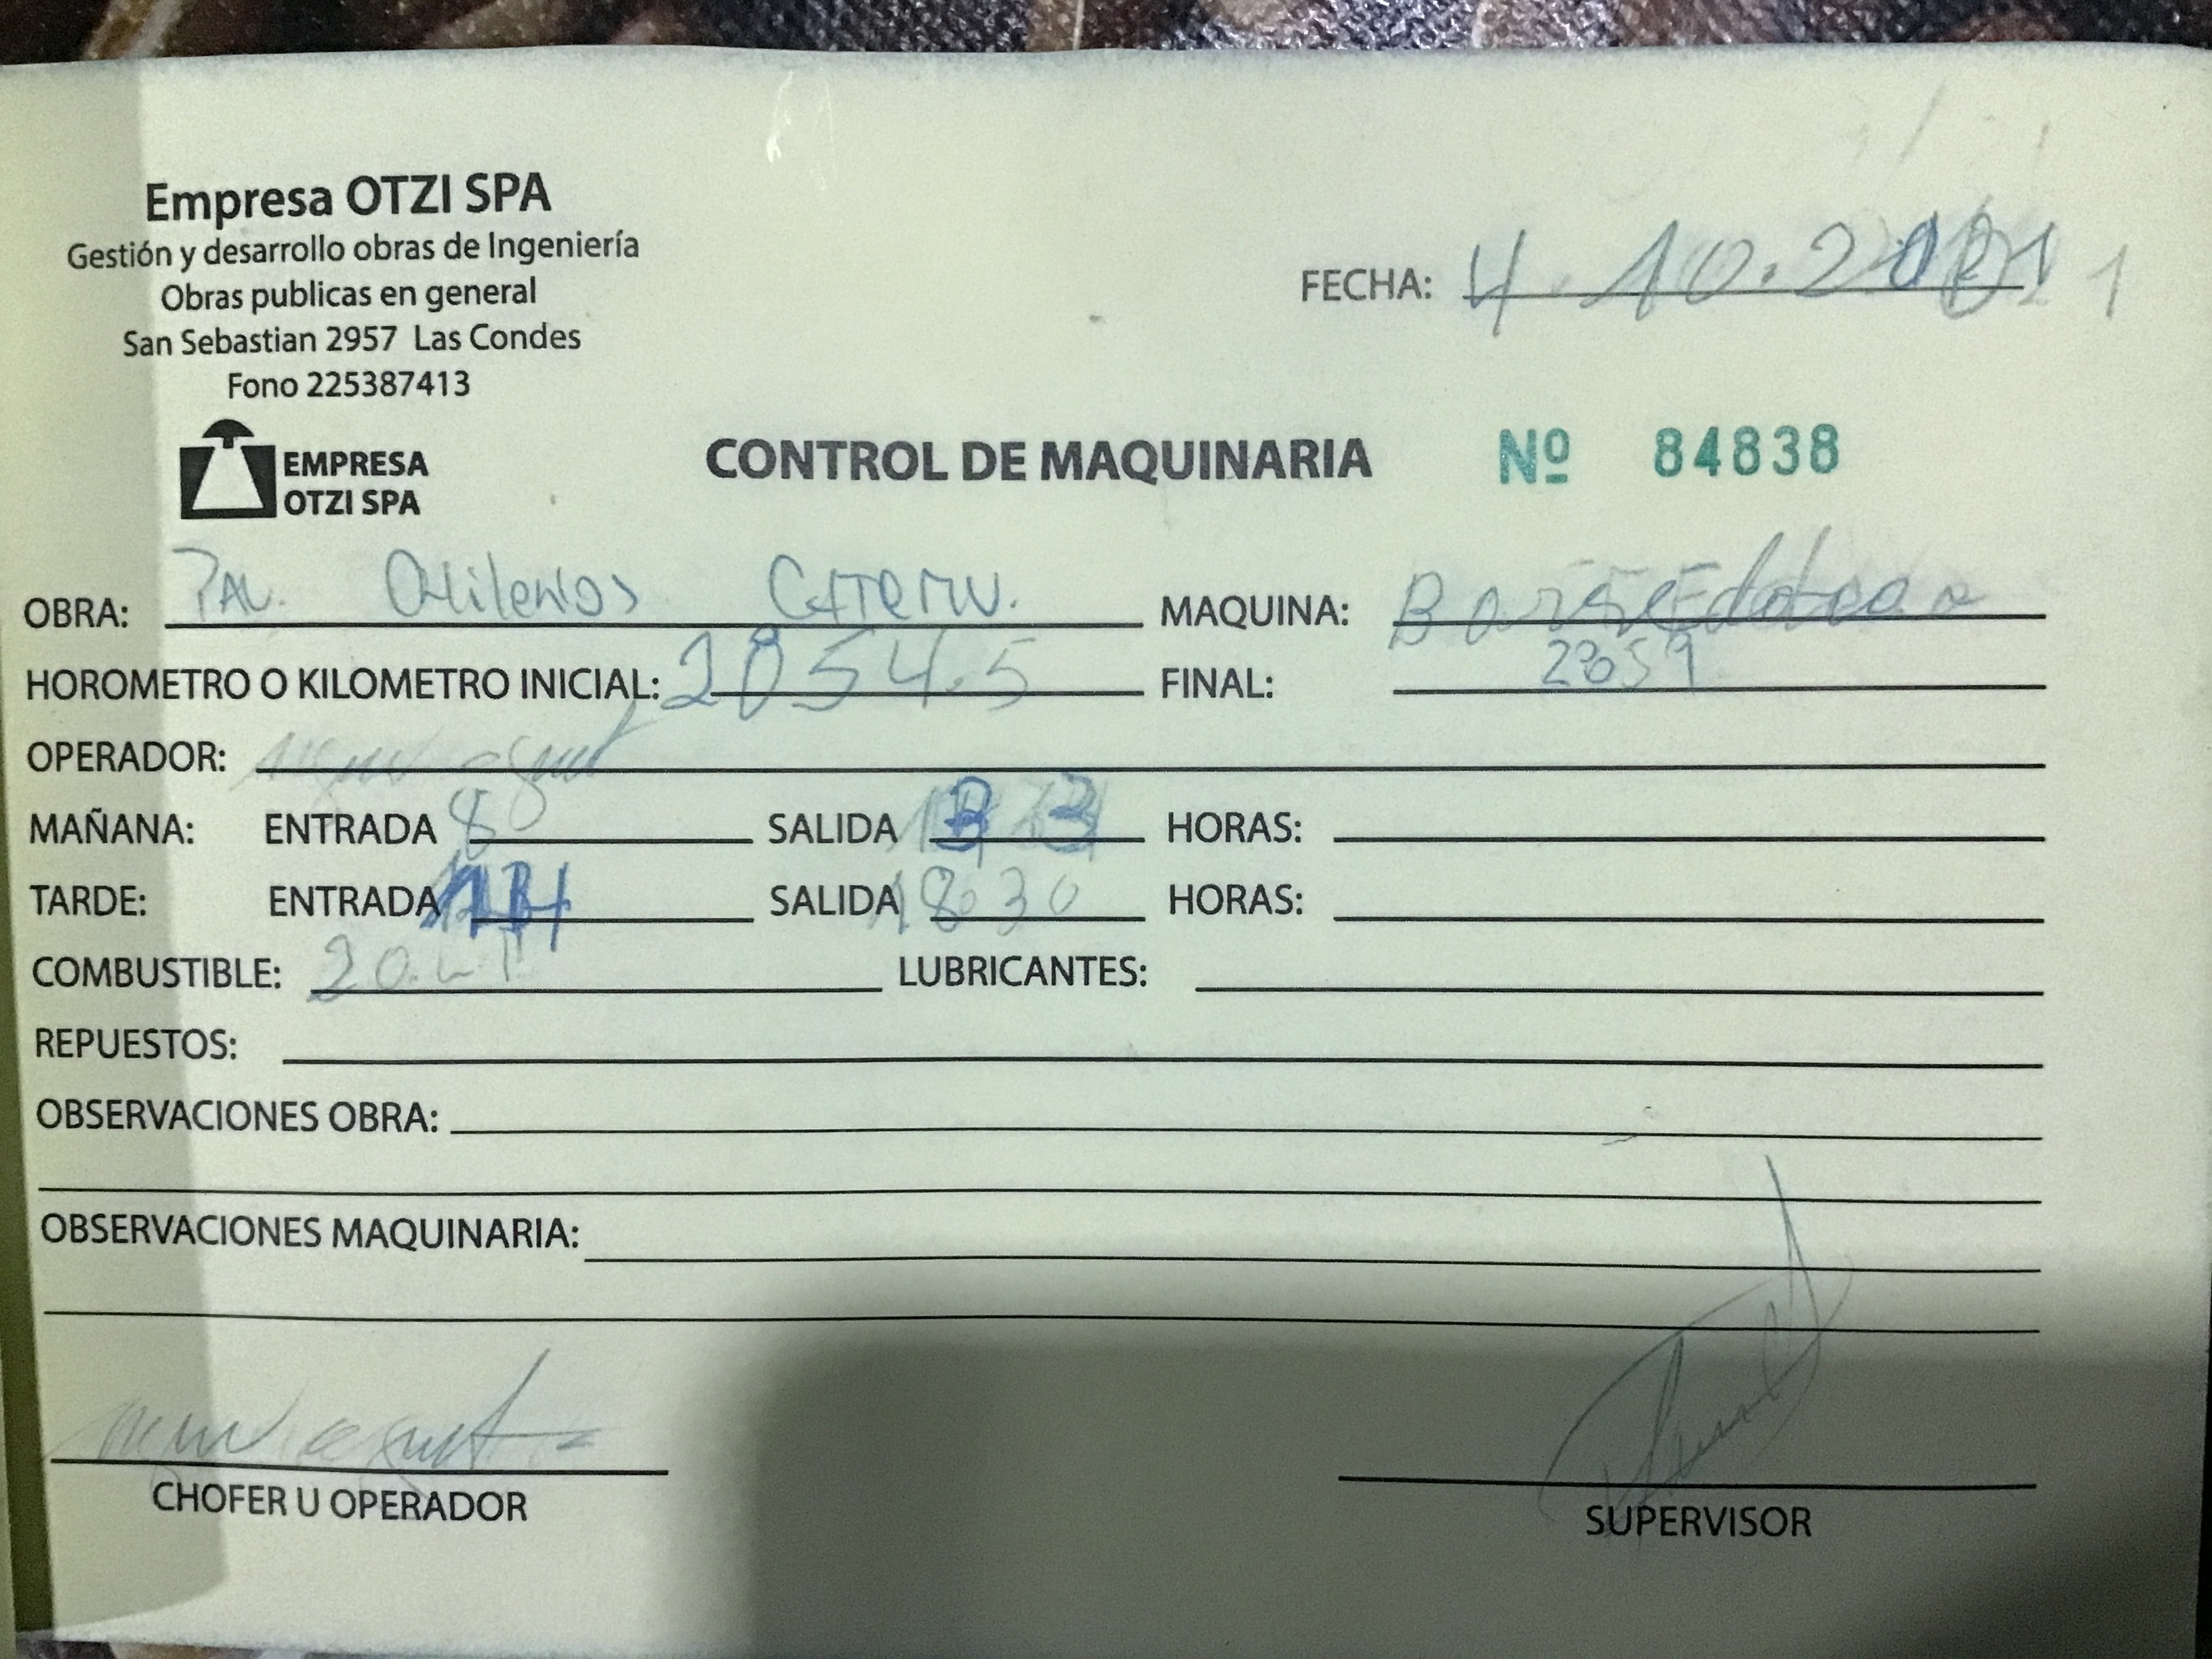 Empresa OTZI SPA
Gestión y desarrollo obras de Ingeniería
Obras publicas en general
San Sebastian 2957 Las Condes
Fono 225387413
FECHA: 4.10.2021
EMPRESA
OTZI SPA
CONTROL DE MAQUINARIA Nº 84838
OBRA: PAV. MAQUINA:
HOROMETRO O KILOMETRO INICIAL: 2854.5 FINAL: 2859
OPERADOR:
MAÑANA: ENTRADA 8 SALIDA 13 HORAS:
TARDE: ENTRADA 14 SALIDA 18.30 HORAS:
COMBUSTIBLE: 20.LT LUBRICANTES:
REPUESTOS:
OBSERVACIONES OBRA:
OBSERVACIONES MAQUINARIA:
CHOFER U OPERADOR
SUPERVISOR